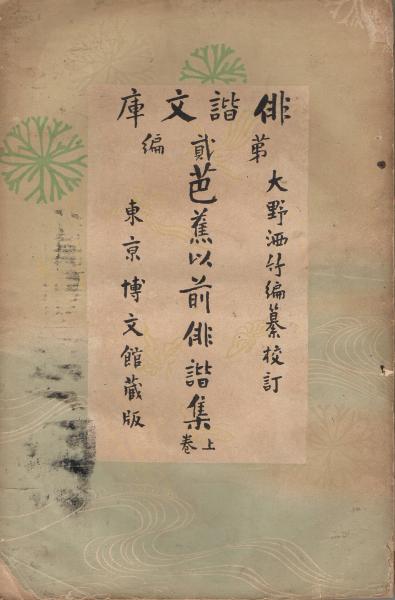 俳諧文庫
第貳編
大野洒竹編纂校訂
芭蕉以前俳諧集
上巻
東京博文館藏版